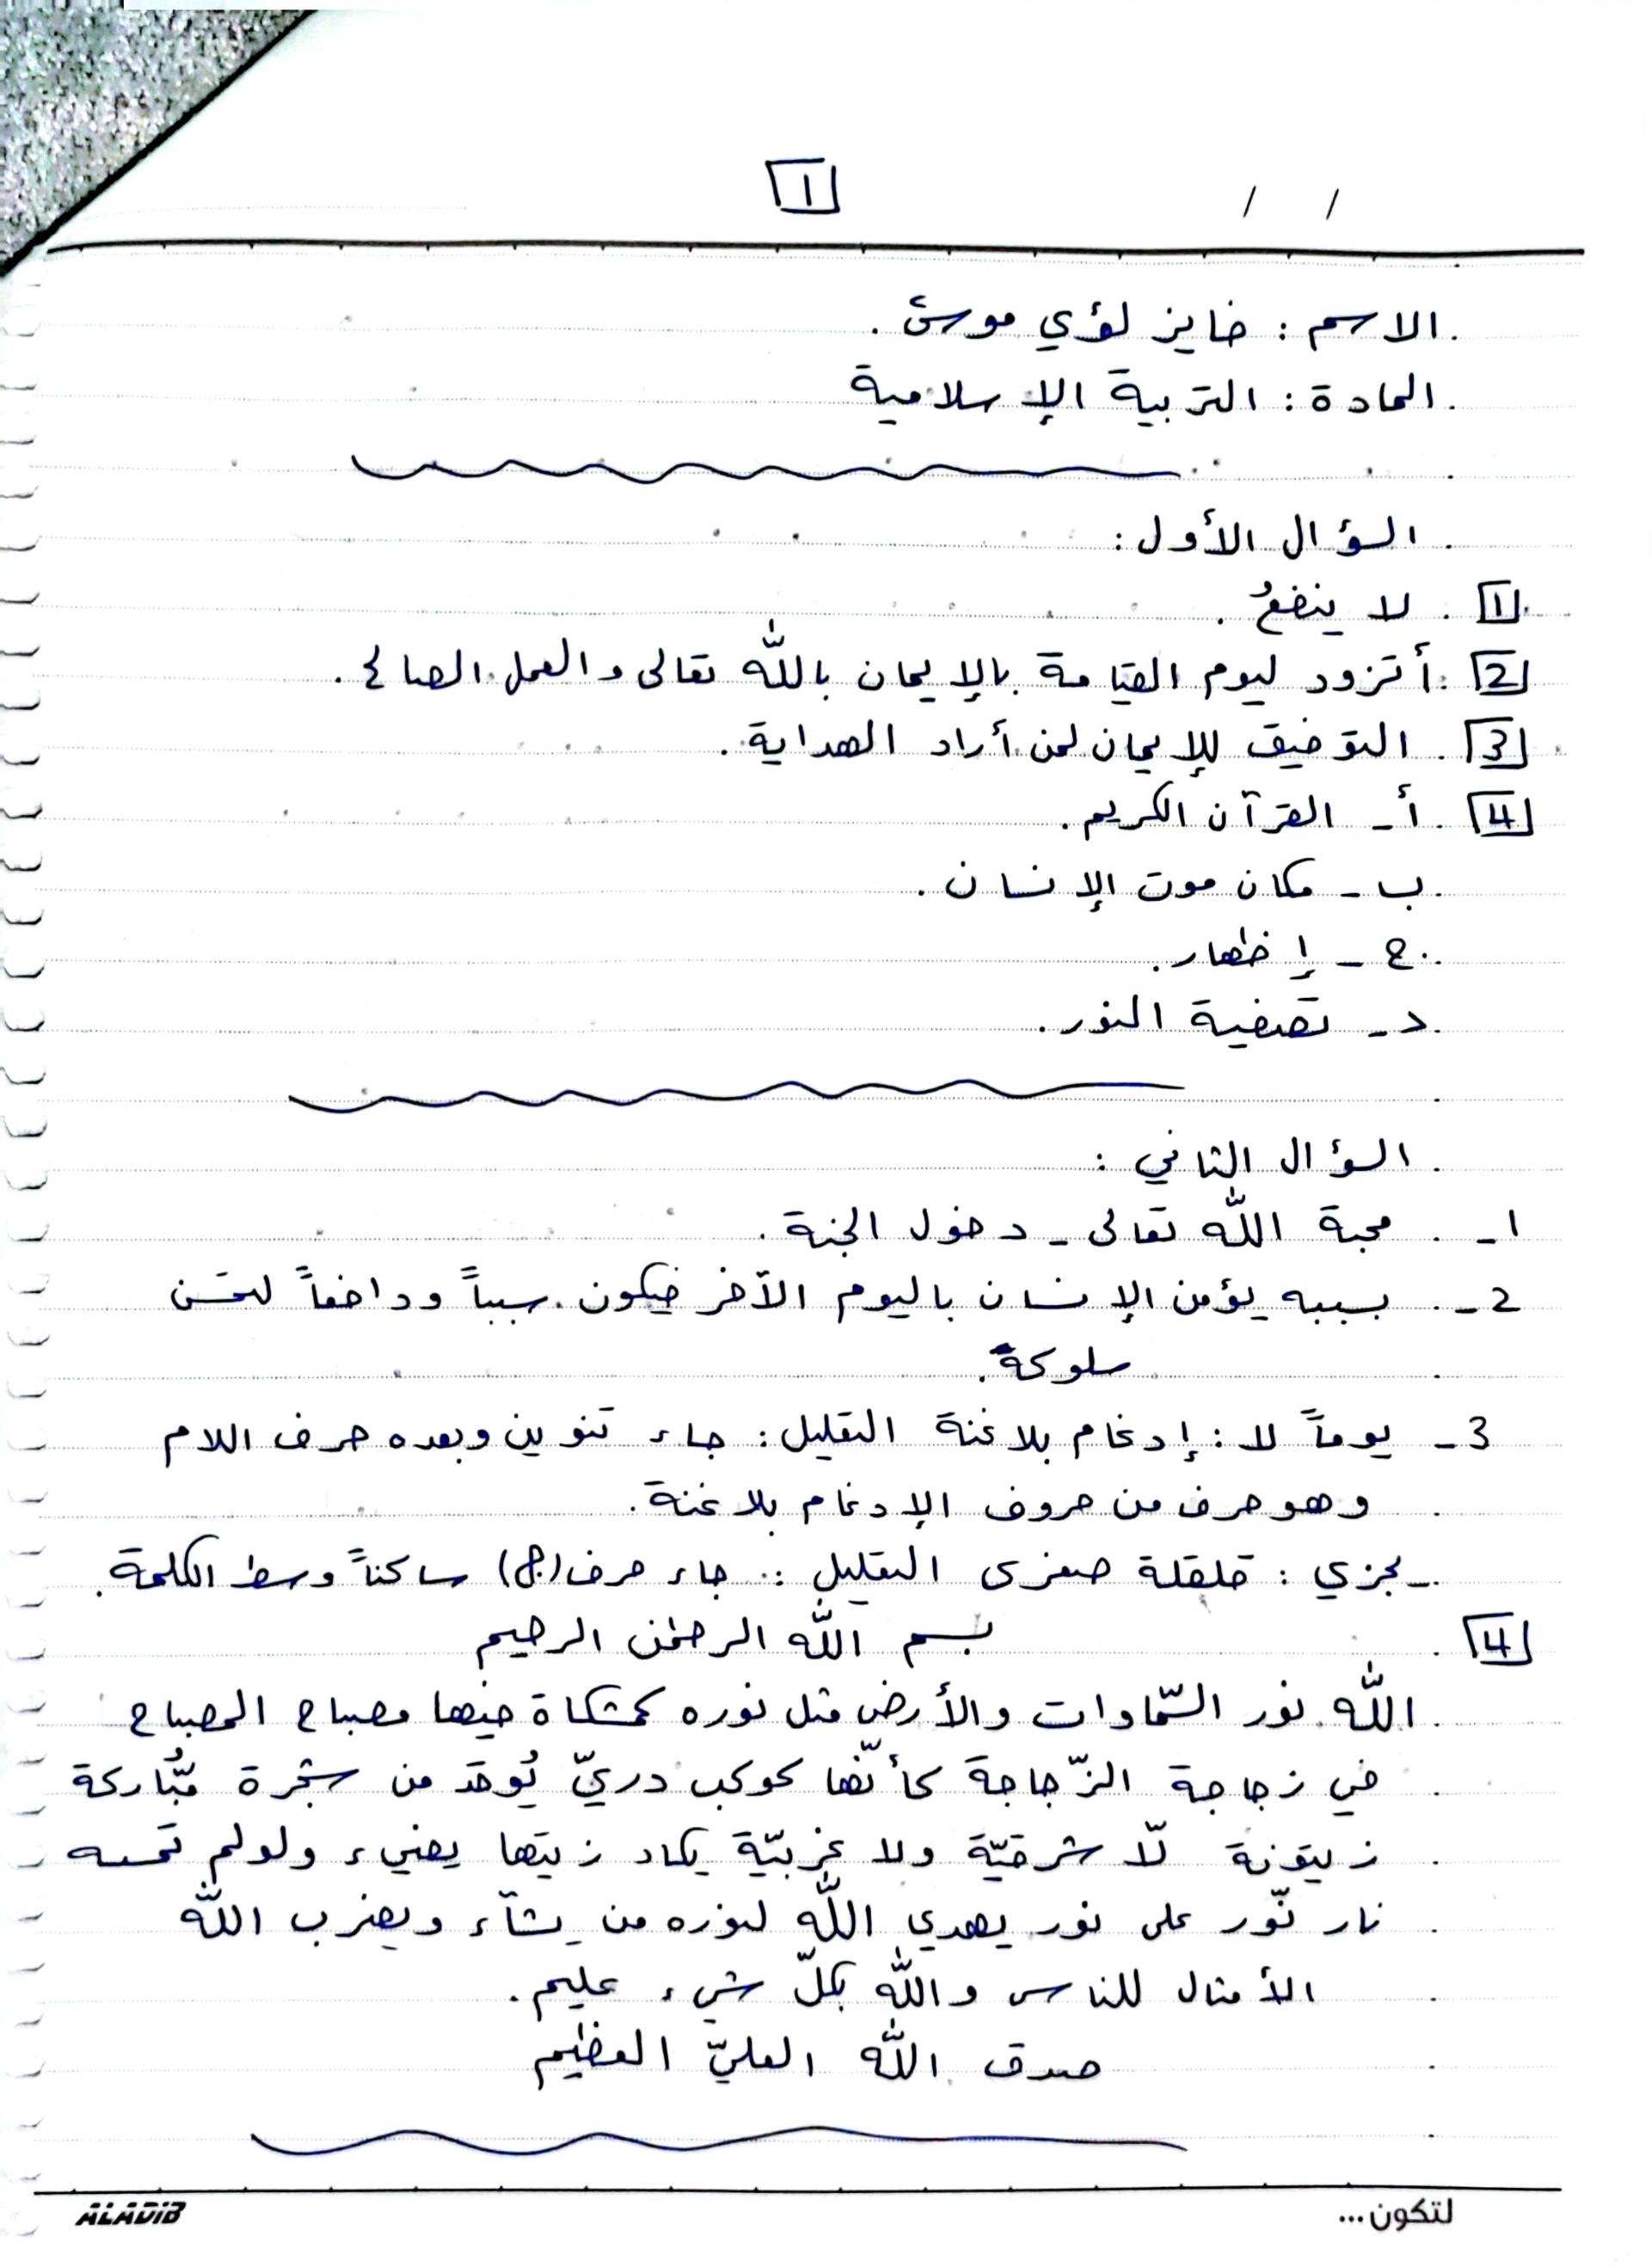 1
/ /
الاسم : فايز لؤي موسى .
المادة : التربية الإسلامية
السؤال الأول :
1 . لا ينفعُ .
2 . أتزود ليوم القيامة بالإيمان بالله تعالى والعمل الصالح .
3 . التوفيق للإيمان لمن أراد الهداية .
4 . أ - القرآن الكريم .
ب - مكان موت الإنسان .
ج - إظهار .
د - تصفية النور .
السؤال الثاني :
1 - محبة الله تعالى - دخول الجنة .
2 - بسببه يؤمن الإنسان باليوم الآخر فيكون سبباً ودافعاً لحسن
سلوكه .
3 - يوماً لا : إدغام بلا غنة التعليل : جاء تنوين وبعده حرف اللام
وهو حرف من حروف الإدغام بلا غنة .
- يجزي : قلقلة صغرى التعليل : جاء حرف (ج) ساكناً وسط الكلمة .
4 بسم الله الرحمن الرحيم
الله نور السّماوات والأرض مثل نوره كمشكاة فيها مصباح المصباح
في زجاجة الزّجاجة كأنّها كوكب دريّ يُوقد من شجرة مّباركة
زيتونة لّا شرقيّة ولا غربيّة يكاد زيتها يضيء ولو لم تمسسه
نار نّور على نور يهدي الله لنوره من يشآء ويضرب الله
الأمثال للناس والله بكلّ شيء عليم .
صدق الله العليّ العظيم
ALADIB
لتكون...